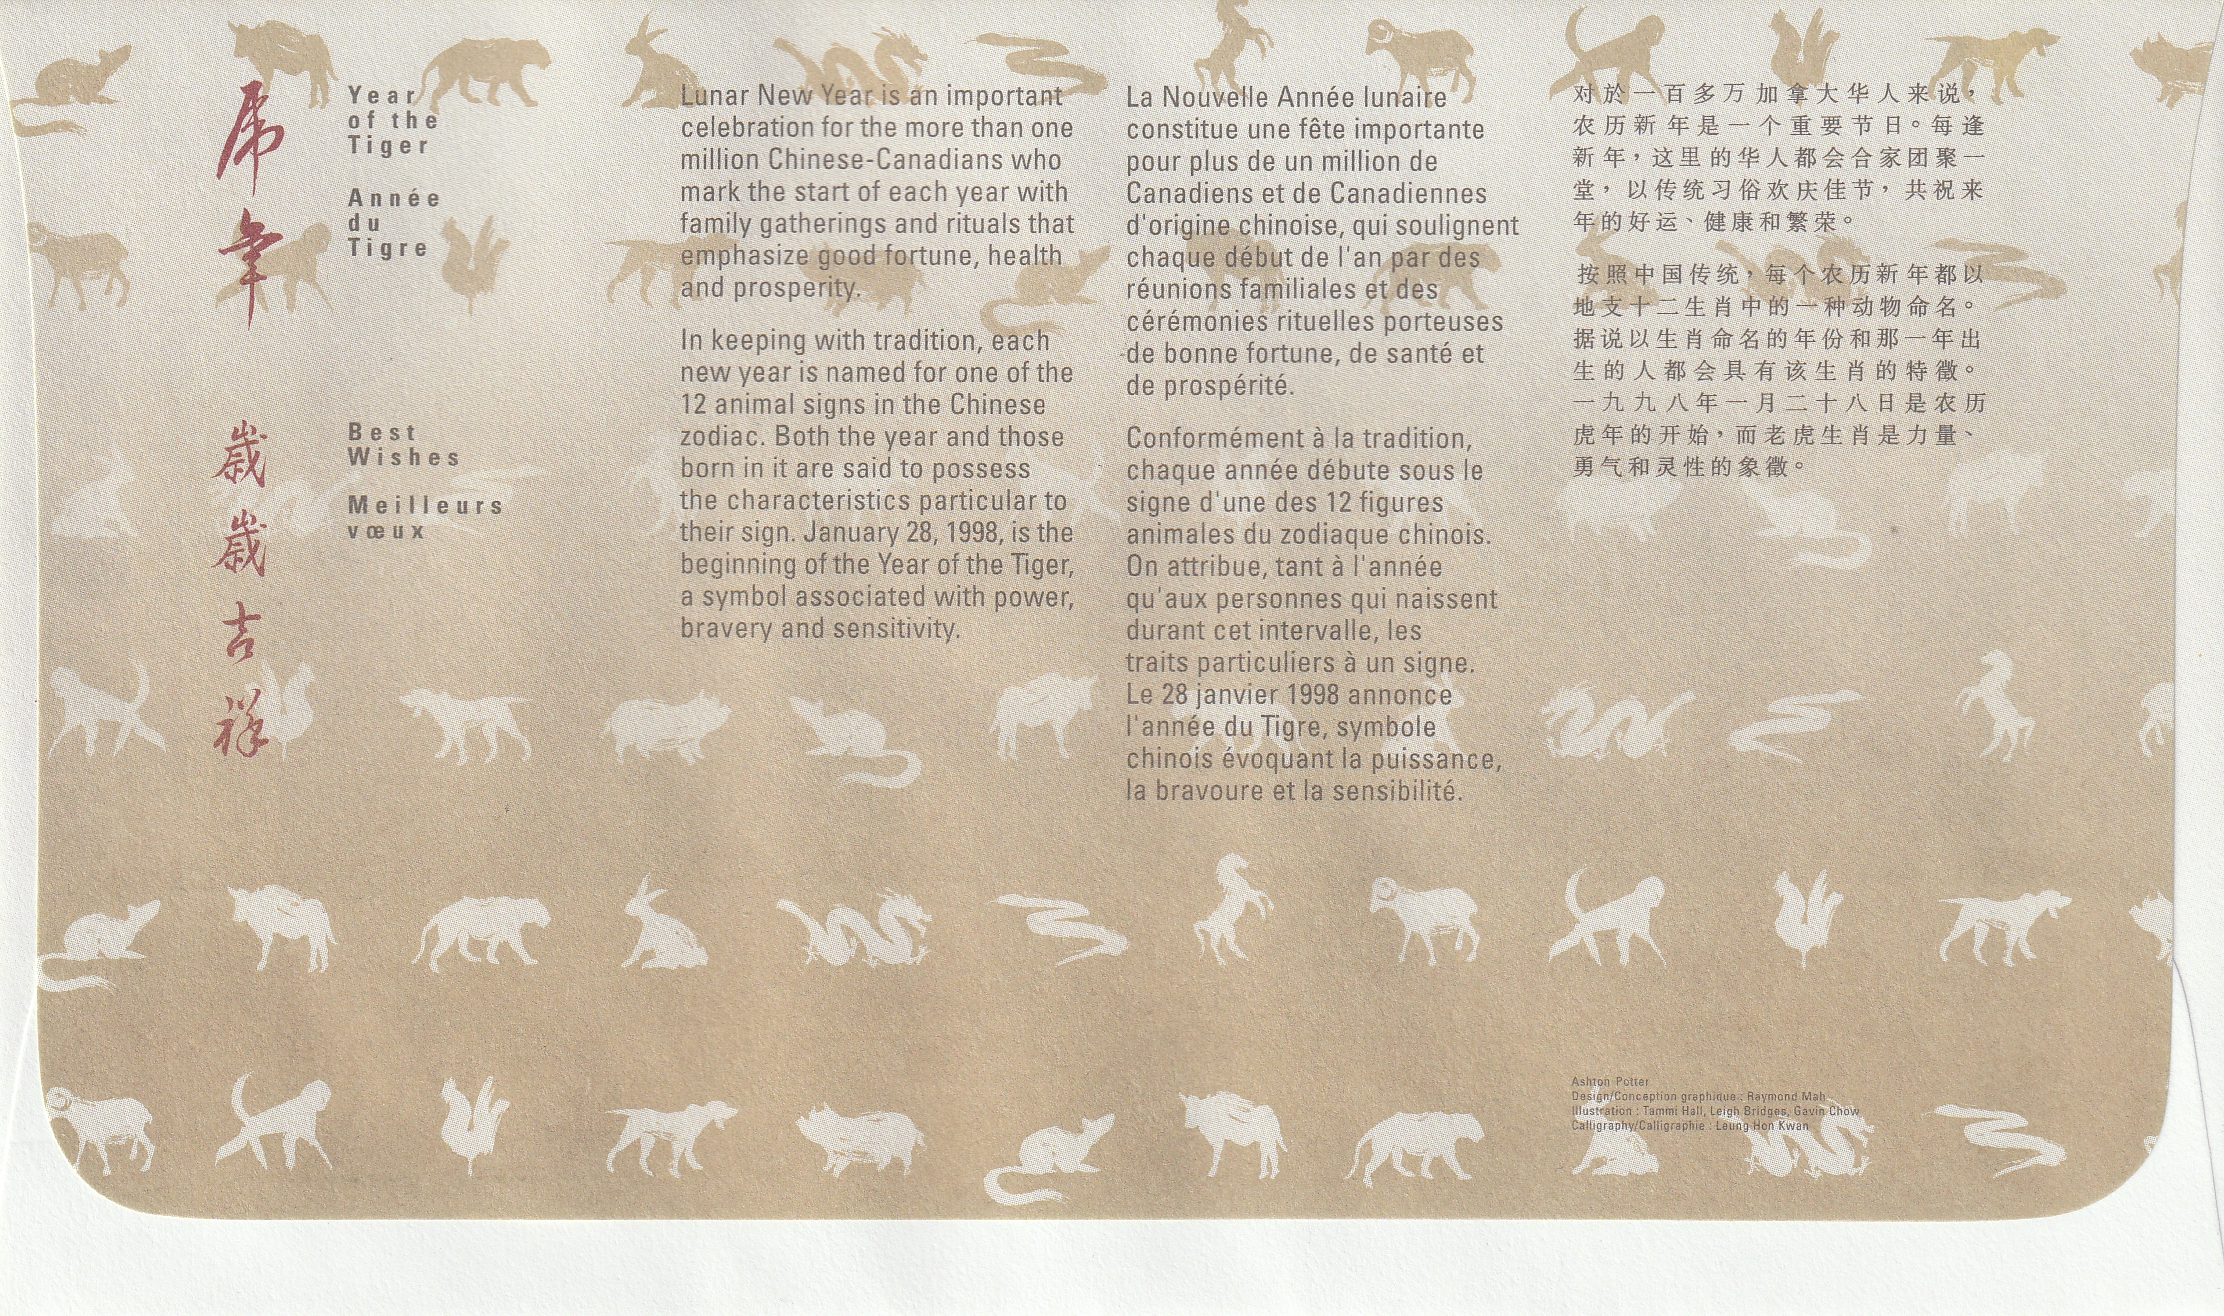 虎年
Year
of the
Tiger
Année
du
Tigre
歲歲吉祥
Best
Wishes
Meilleurs
vœux
Lunar New Year is an important
celebration for the more than one
million Chinese-Canadians who
mark the start of each year with
family gatherings and rituals that
emphasize good fortune, health
and prosperity.
In keeping with tradition, each
new year is named for one of the
12 animal signs in the Chinese
zodiac. Both the year and those
born in it are said to possess
the characteristics particular to
their sign. January 28, 1998, is the
beginning of the Year of the Tiger,
a symbol associated with power,
bravery and sensitivity.
La Nouvelle Année lunaire
constitue une fête importante
pour plus de un million de
Canadiens et de Canadiennes
d'origine chinoise, qui soulignent
chaque début de l'an par des
réunions familiales et des
cérémonies rituelles porteuses
de bonne fortune, de santé et
de prospérité.
Conformément à la tradition,
chaque année débute sous le
signe d'une des 12 figures
animales du zodiaque chinois.
On attribue, tant à l'année
qu'aux personnes qui naissent
durant cet intervalle, les
traits particuliers à un signe.
Le 28 janvier 1998 annonce
l'année du Tigre, symbole
chinois évoquant la puissance,
la bravoure et la sensibilité.
对於一百多万加拿大华人来说，
农历新年是一个重要节日。每逢
新年，这里的华人都会合家团聚一
堂，以传统习俗欢庆佳节，共祝来
年的好运、健康和繁荣。
按照中国传统，每个农历新年都以
地支十二生肖中的一种动物命名。
据说以生肖命名的年份和那一年出
生的人都会具有该生肖的特徵。
一九九八年一月二十八日是农历
虎年的开始，而老虎生肖是力量、
勇气和灵性的象徵。
Ashton Potter
Design/Conception graphique : Raymond Mah
Illustration : Tammi Hall, Leigh Bridges, Gavin Chow
Calligraphy/Calligraphie : Leung Hon Kwan